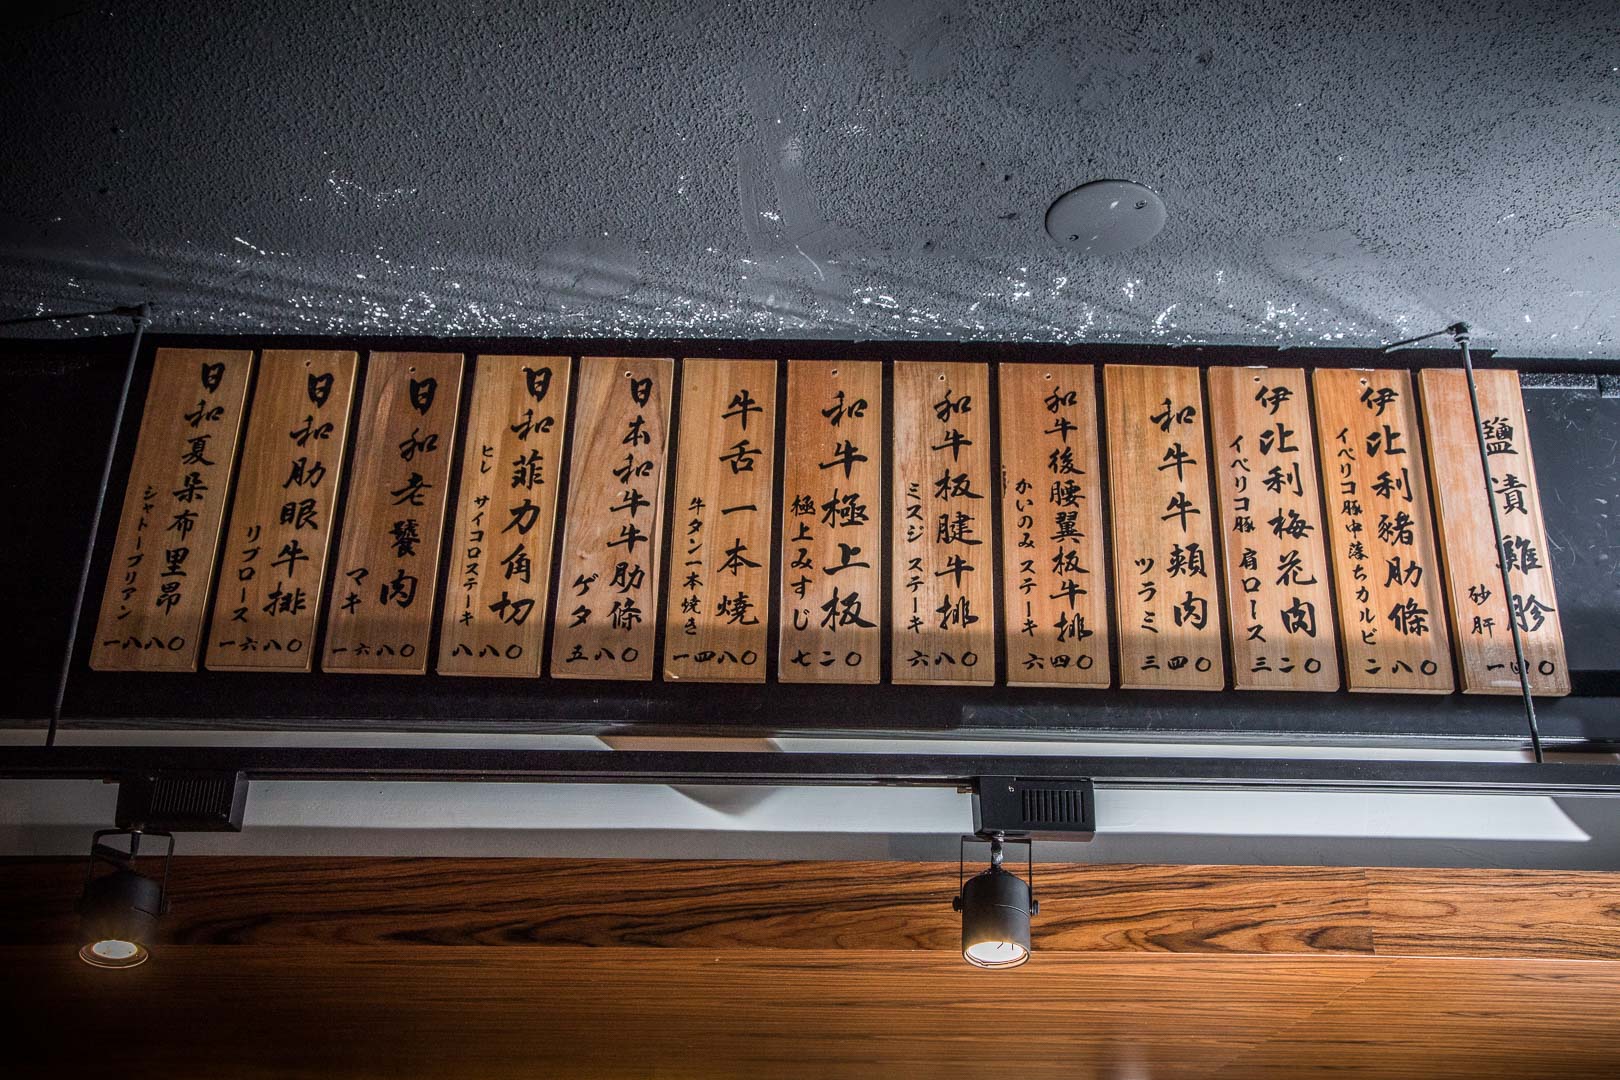 鹽漬雞胗
砂肝
一四〇
伊比利豬肋條
イベリコ豚中落ちカルビ
二八〇
伊比利梅花肉
イベリコ豚 肩ロース
三二〇
和牛牛頰肉
ツラミ
三四〇
和牛後腰翼板牛排
かいのみステーキ
六四〇
和牛板腱牛排
ミスジ ステーキ
六八〇
和牛極上板
極上みすじ
七二〇
牛舌一本燒
牛タン一本焼き
一四八〇
日本和牛牛肋條
ゲタ
五八〇
日和菲力角切
ヒレ サイコロステーキ
八八〇
日和老饕肉
マキ
一六八〇
日和肋眼牛排
リブロース
一六八〇
日和夏朵布里昂
シャトーブリアン
一八八〇